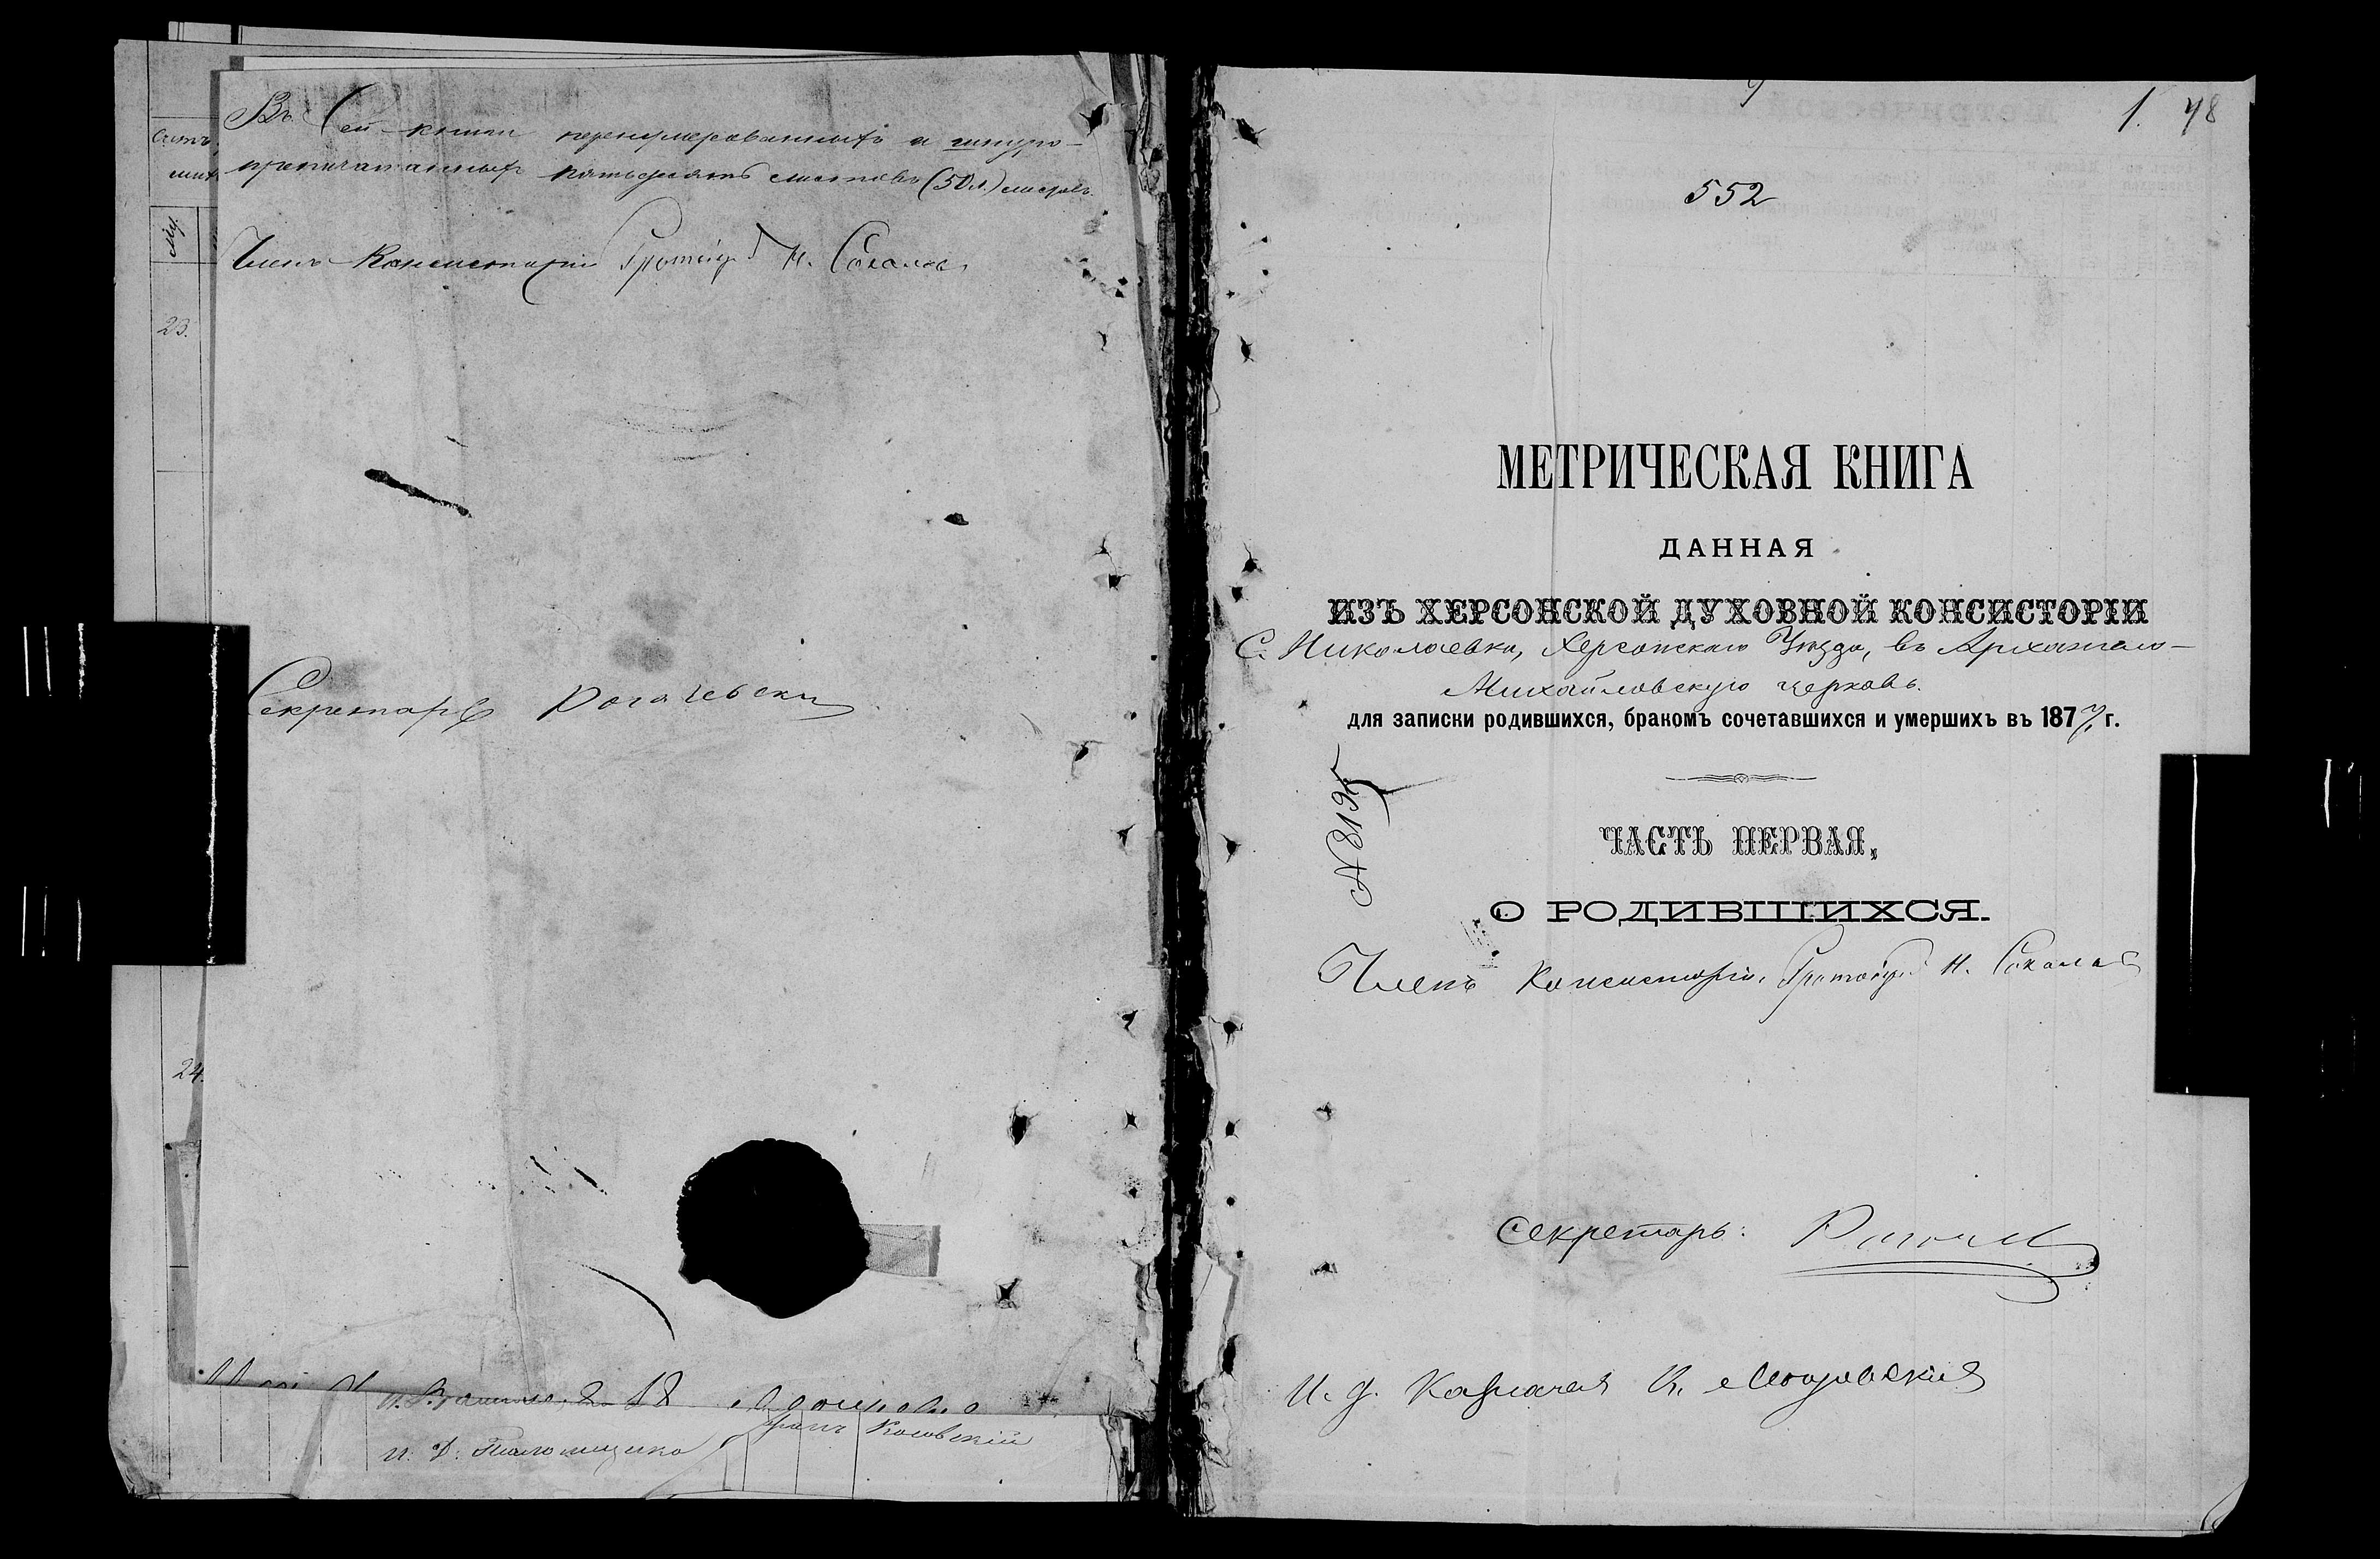 Въ сей книги перенумерованныхъ и шнуро-
припечатанныхъ пятьдесятъ листовъ (50 л.) листовъ.
Членъ Консисторіи Протоіер. Н. Соколовъ
23.
Секретарь Рогачевскій
24.
1. 48
552
МЕТРИЧЕСКАЯ КНИГА
ДАННАЯ
ИЗЪ ХЕРСОНСКОЙ ДУХОВНОЙ КОНСИСТОРІИ
С. Николаевка, Херсонскаго Уѣзда, въ Архангело-
Михайловскую церковь.
для записки родившихся, бракомъ сочетавшихся и умершихъ въ 1877 г.
№ 8195
ЧАСТЬ ПЕРВАЯ,
О РОДИВШИХСЯ.
Членъ Консисторіи, Протоіер. Н. Соколовъ
Секретарь:
И. д. Казначея